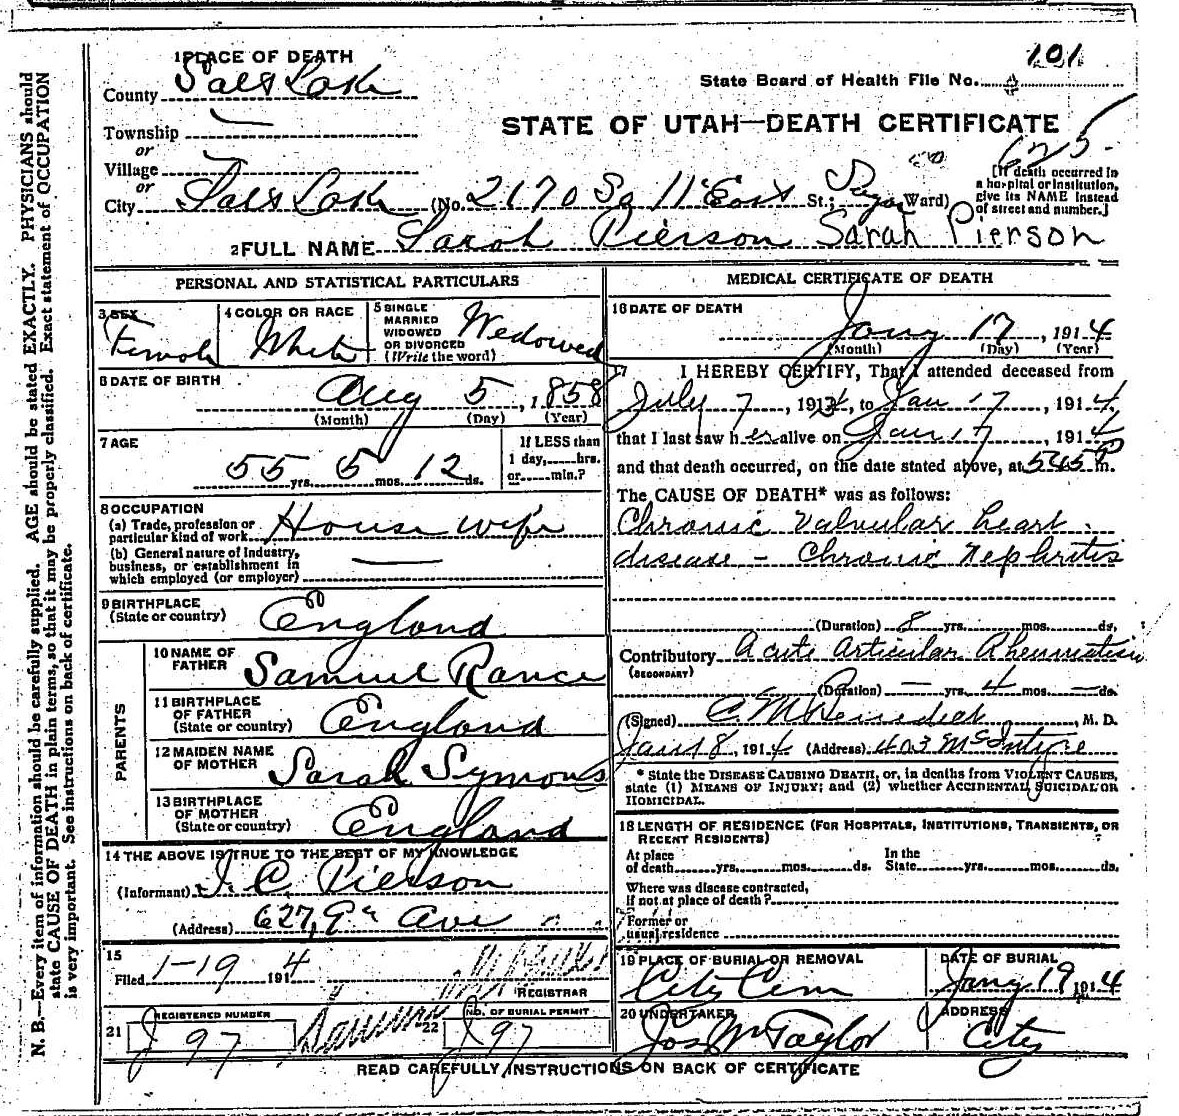 N. B.—Every item of information should be carefully supplied. AGE should be stated EXACTLY. PHYSICIANS should
state CAUSE OF DEATH in plain terms, so that it may be properly classified. Exact statement of OCCUPATION
is very important. See instructions on back of certificate.
1 PLACE OF DEATH
County Salt Lake
State Board of Health File No. 101
Township
or
Village
or
STATE OF UTAH—DEATH CERTIFICATE
625
City Salt Lake (No. 2170 So 11" East St.; Sugar Ward)
[If death occurred in
a hospital or institution,
give its NAME instead
of street and number.]
2 FULL NAME Sarah Pierson Sarah Pierson
PERSONAL AND STATISTICAL PARTICULARS
3 SEX Female
4 COLOR OR RACE White
5 SINGLE
MARRIED
WIDOWED
OR DIVORCED
(Write the word) Wedowed
6 DATE OF BIRTH
Aug 5, 1858
(Month) (Day) (Year)
7 AGE
55 yrs. 5 mos. 12 ds.
If LESS than
1 day,.....hrs.
or.....min.?
8 OCCUPATION
(a) Trade, profession or
particular kind of work House wife
(b) General nature of Industry,
business, or establishment in
which employed (or employer)
9 BIRTHPLACE
(State or country) England
PARENTS
10 NAME OF
FATHER Samuel Rance
11 BIRTHPLACE
OF FATHER
(State or country) England
12 MAIDEN NAME
OF MOTHER Sarah Symons
13 BIRTHPLACE
OF MOTHER
(State or country) England
14 THE ABOVE IS TRUE TO THE BEST OF MY KNOWLEDGE
(Informant) J. C. Pierson
(Address) 627, 9th Ave
15
Filed 1-19 1914
REGISTRAR
21 REGISTERED NUMBER
J 97
22 NO. OF BURIAL PERMIT
J 97
MEDICAL CERTIFICATE OF DEATH
16 DATE OF DEATH
Jany 17, 1914
(Month) (Day) (Year)
17 I HEREBY CERTIFY, That I attended deceased from
July 7, 191, to Jan 17, 1914,
that I last saw her alive on Jan 17, 1914
and that death occurred, on the date stated above, at 545 P m.
The CAUSE OF DEATH* was as follows:
Chronic Valvular heart
disease - Chronic Nephritis
(Duration) 8 yrs. mos. ds.
Contributory Acute Articular Rheumatism
(SECONDARY)
(Duration) — yrs. 4 mos. — ds.
(Signed) C. M. Benedict, M. D.
Jan 18, 1914 (Address) 403 McIntyre
* State the DISEASE CAUSING DEATH, or, in deaths from VIOLENT CAUSES,
state (1) MEANS OF INJURY; and (2) whether ACCIDENTAL, SUICIDAL OR
HOMICIDAL.
18 LENGTH OF RESIDENCE (FOR HOSPITALS, INSTITUTIONS, TRANSIENTS, OR
RECENT RESIDENTS)
At place
of death yrs. mos. ds.
In the
State yrs. mos. ds.
Where was disease contracted,
if not at place of death?
Former or
usual residence
19 PLACE OF BURIAL OR REMOVAL
City Cem
DATE OF BURIAL
Jany 19 1914
20 UNDERTAKER
Jos Wm Taylor
ADDRESS
City
READ CAREFULLY INSTRUCTIONS ON BACK OF CERTIFICATE